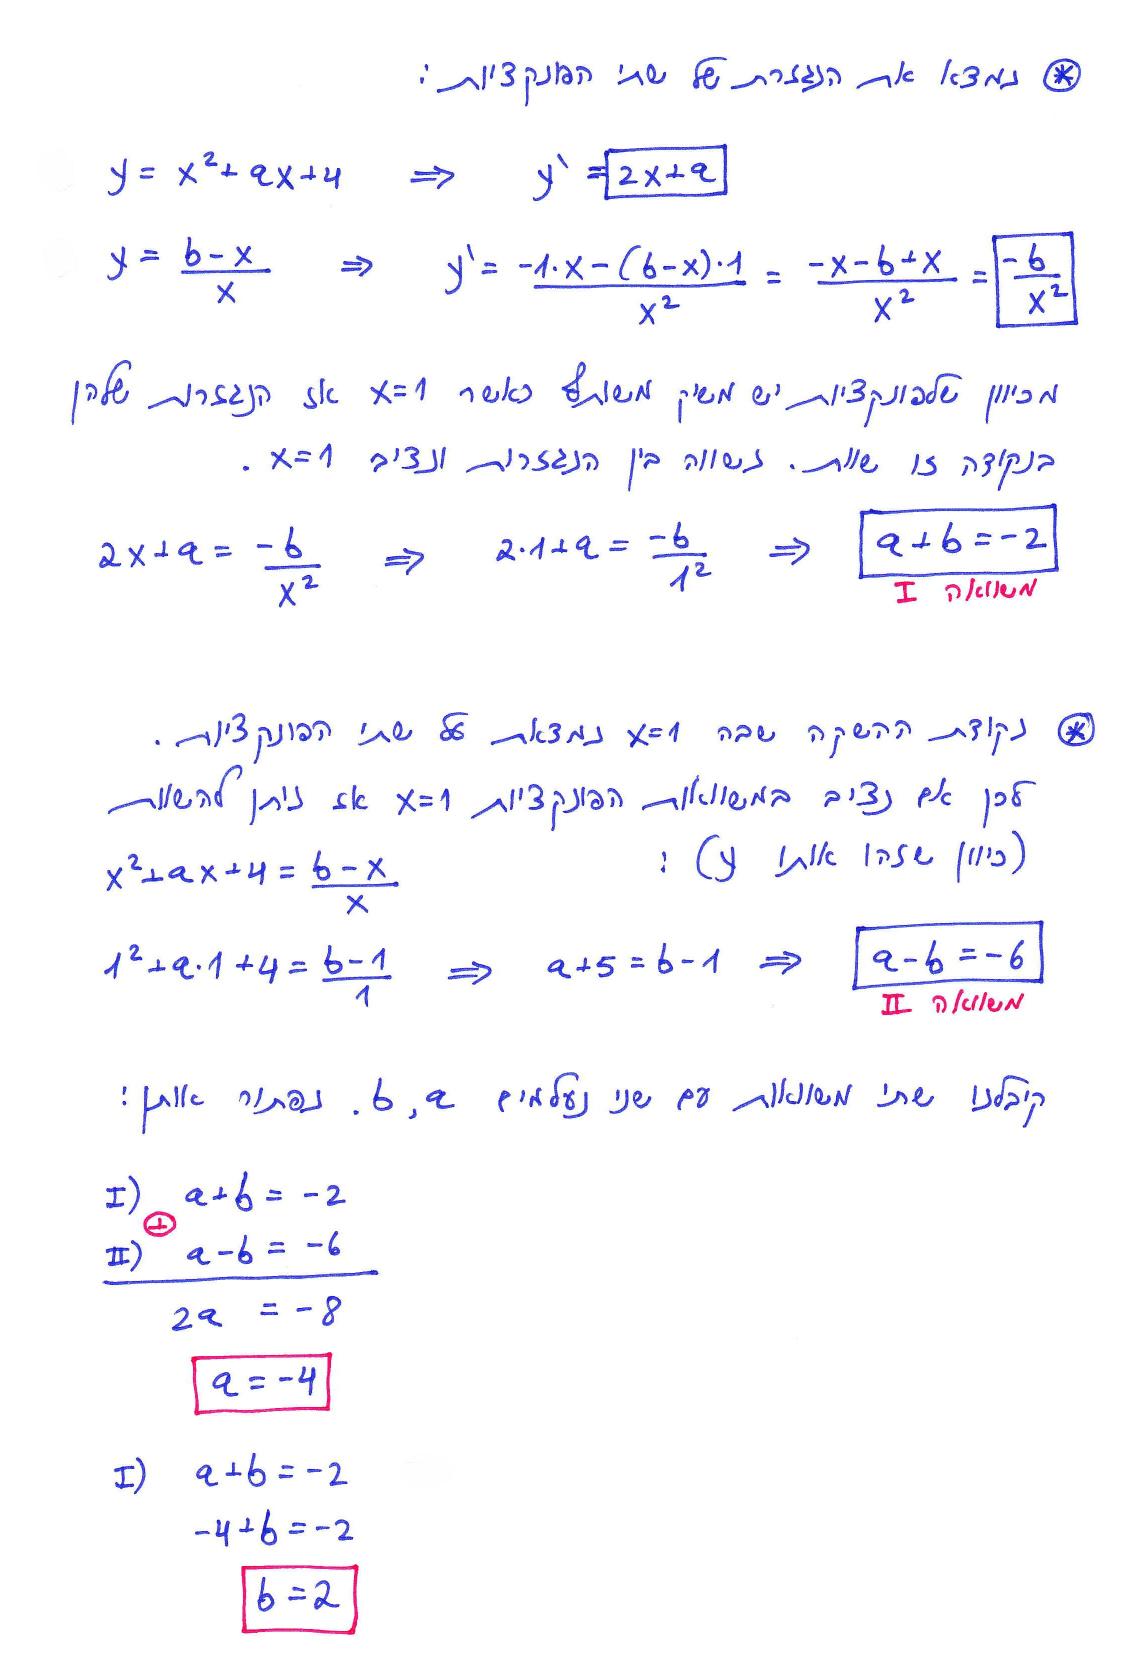 ⊛ נמצא את הנגזרת של שתי הפונקציות:
y = x²+ax+4 ⇒ y` = 2x+a
y = (b-x)/x ⇒ y` = (-1·x-(b-x)·1)/x² = (-x-b+x)/x² = -b/x²
מכיוון שלפונקציות יש משיק משותף כאשר x=1 אז הנגזרות שלהן
בנקודה זו שוות. נשווה בין הנגזרות ונציב x=1.
2x+a = -b/x² ⇒ 2·1+a = -b/1² ⇒ a+b=-2
משוואה I
⊛ נקודת ההשקה שבה x=1 נמצאת על שתי הפונקציות.
לכן אם נציב במשוואות הפונקציות x=1 אז ניתן להשוות
(כיוון שזהו אותו y):
x²+ax+4 = (b-x)/x
1²+a·1+4 = (b-1)/1 ⇒ a+5=b-1 ⇒ a-b=-6
משוואה II
קיבלנו שתי משוואות עם שני נעלמים a, b. נפתור אותן:
I) a+b = -2
⊕
II) a-b = -6
2a = -8
a=-4
I) a+b=-2
-4+b=-2
b=2